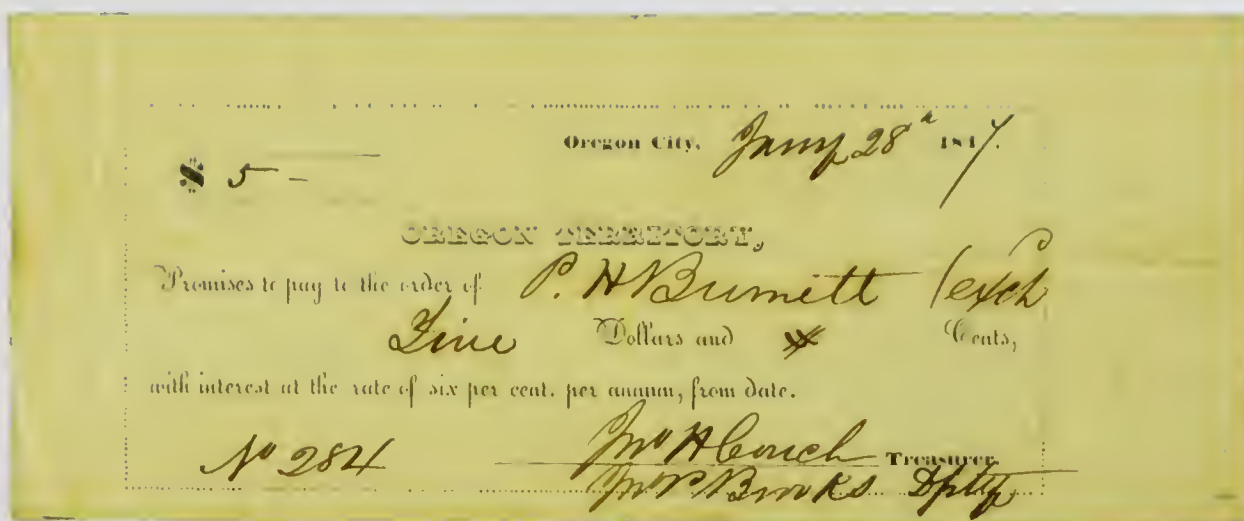 Oregon City, Jany 28th 1847.
$ 5 –
OREGON TERRITORY,
Promises to pay to the order of P. H Burnett (exch
Five Dollars and Cents,
with interest at the rate of six per cent. per annum, from date.
No 284 Jno H Couch Treasurer
Jno P Brooks Dpty